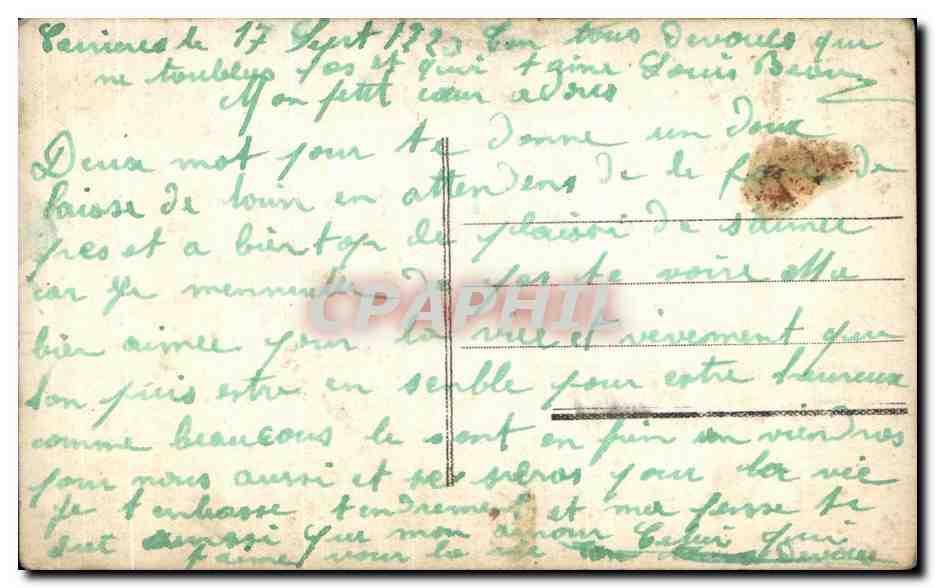 le 17 Sept 192 ton tous devoues qui
ne toublev pas et qui Louis
Mon ptit cœur adores
Deux mot pour te donne un doux
baisse de loin en attendens de le de
pres et a biento de plaissi de
car je de pas te voire Ma
bien aimee pour la vie et vivement quon
son puis estre en senble pour estre heureux
comme beaucous le sont en fin sa viendras
pour nous aussi et se seras pour la vie
Je tenbasse tendrement et ma pensse te
suit aussi que mon amour Celui qui
taime pour la vie ton devoues
CPAPHIL